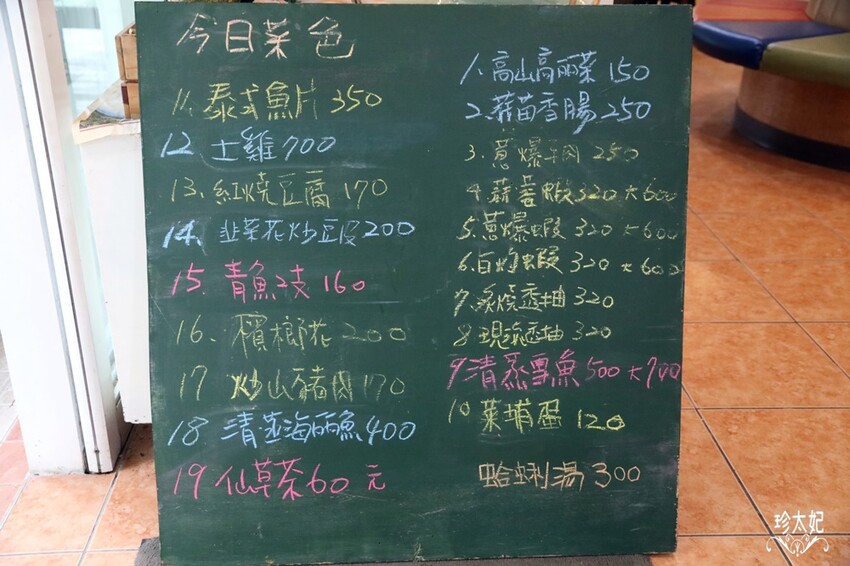 今日菜色
1.高山高丽菜 150
2.蒜苗香腸 250
3.蔥爆牛肉 250
4.蒜蓉蝦 320 大600
5.蔥爆蝦 320 大600
6.白灼蝦 320 大600
7.炙燒透抽 320
8 現流透抽 320
9清蒸雪魚 500 大700
10菜埔蛋 120
蛤蜊湯 300
11.泰式魚片 350
12.土雞 700
13.紅燒豆腐 170
14.韭菜花炒豆皮 200
15.青魚2支 160
16.檳榔花 200
17 炒山豬肉 170
18 清蒸海丽魚 400
19仙草茶 60元
珍太妃